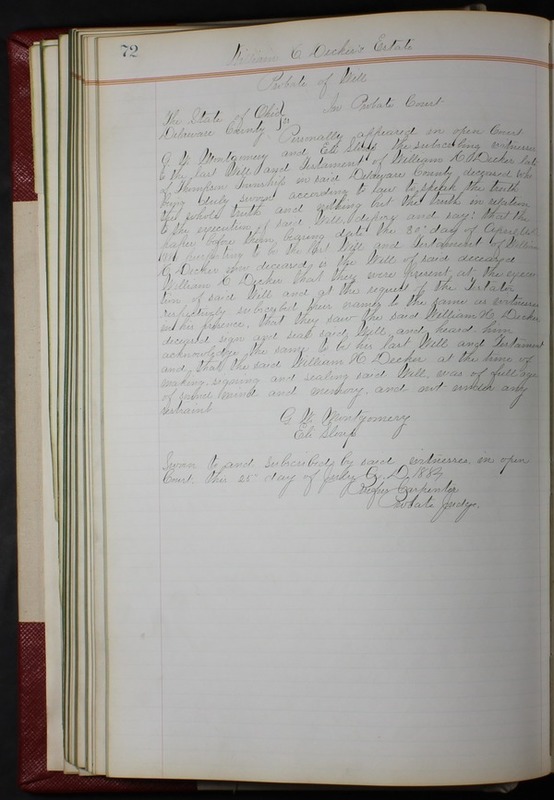 72
William C Decker's Estate
Probate of Will
The State of Ohio } In Probate Court
Delaware County } ss Personally appeared in open Court
G W Montgomery and Eli the subscribing witnesses
to the last Will and Testament of William H Decker late
of Thompson Township in said Delaware County deceased who
being duly sworn according to law to speak the truth
the whole truth and nothing but the truth in relation
to the execution of said Will, depose and say: that the
paper before them, bearing date the 30" day of
purporting to be the last Will and Testament of William
C Decker now deceased is the Will of said deceased
William C Decker that they were present at the execu
tion of said Will and at the request of the testator
subscribed their names to the same as witnesses
in his presence, that they saw the said William H. Decker
deceased sign and seal said Will, and heard him
acknowledge the same to be his last Will and Testament
and that the said William H. Decker at the time of
making, signing and sealing said Will, was of full age
of sound mind and memory, and not under any
restraint
G W Montgomery
Eli
Sworn to and subscribed by said witnesses in open
Court, this 25" day of July A. D. 188
Carpenter
Probate Judge.